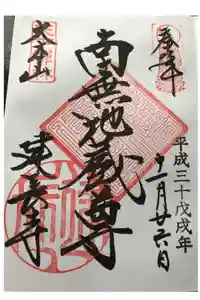 奉拝
平成三十戊戌年
十一月廿六日
南無地蔵尊
大本山
蓮台寺